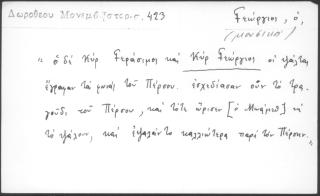 Δωροθεου Μονεμβ. Ιστορισ. 423
Γεώργιος, ὁ,
(μουσικὸς)
"ὁ δὲ Κὺρ Γεράσιμος καὶ Κὺρ Γεώργιος οἱ ψάλται
ἔγραψαν τὰ φωναὶ τοῦ Πέρσου. ἐσχεδίασαν οὖν τὸ τρα-
γοῦδι τοῦ Πέρσου, καὶ τότε ὥρισεν [ὁ Μπάμεθ] νὰ
τὸ ψάλουν, καὶ ἐψάλαν το καλλιώτερα παρὰ τὸν Πέρσην."